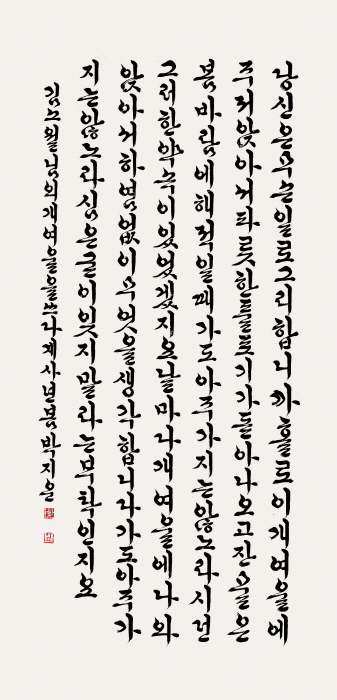 당신은무슨일로그리합니까홀로이개여울에
주저앉아서파릇한풀포기가돋아나오고잔물은
봄바람에해적일때가도아주가지는않노라시던
그러한약속이있었겠지요날마다개여울에나와
앉아서하염없이무엇을생각합니다가도아주가
지는않노라심은굳이잊지말라는부탁인지요
김소월님의개여울을쓰다계사년봄박지운